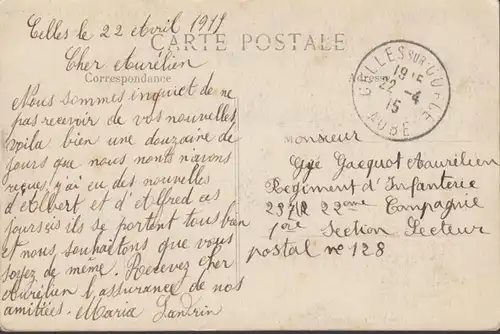 Celles le 22 Avril 1915
CARTE POSTALE
Cher Aurélien
Correspondance
Adresse
Nous sommes inquiet de ne
pas recevoir de vos nouvelles
voila bien une douzaine de
jours que nous nonts navons
reçues j'ai eu des nouvelles
d'Albert et d'Alfred ces
jours ci ils se portent tous bien
et nous souhaitons que vous
soyez de même. Recevez cher
Aurélien l'assurance de nos
amitiées. Maria Landrin
CELLES SUR OURCE
22 -4
15
AUBE
Monsieur
Gacquot Aurélien
Regiment d'Infanterie
22ème Compagnie
1ère Section Secteur
postal n° 128